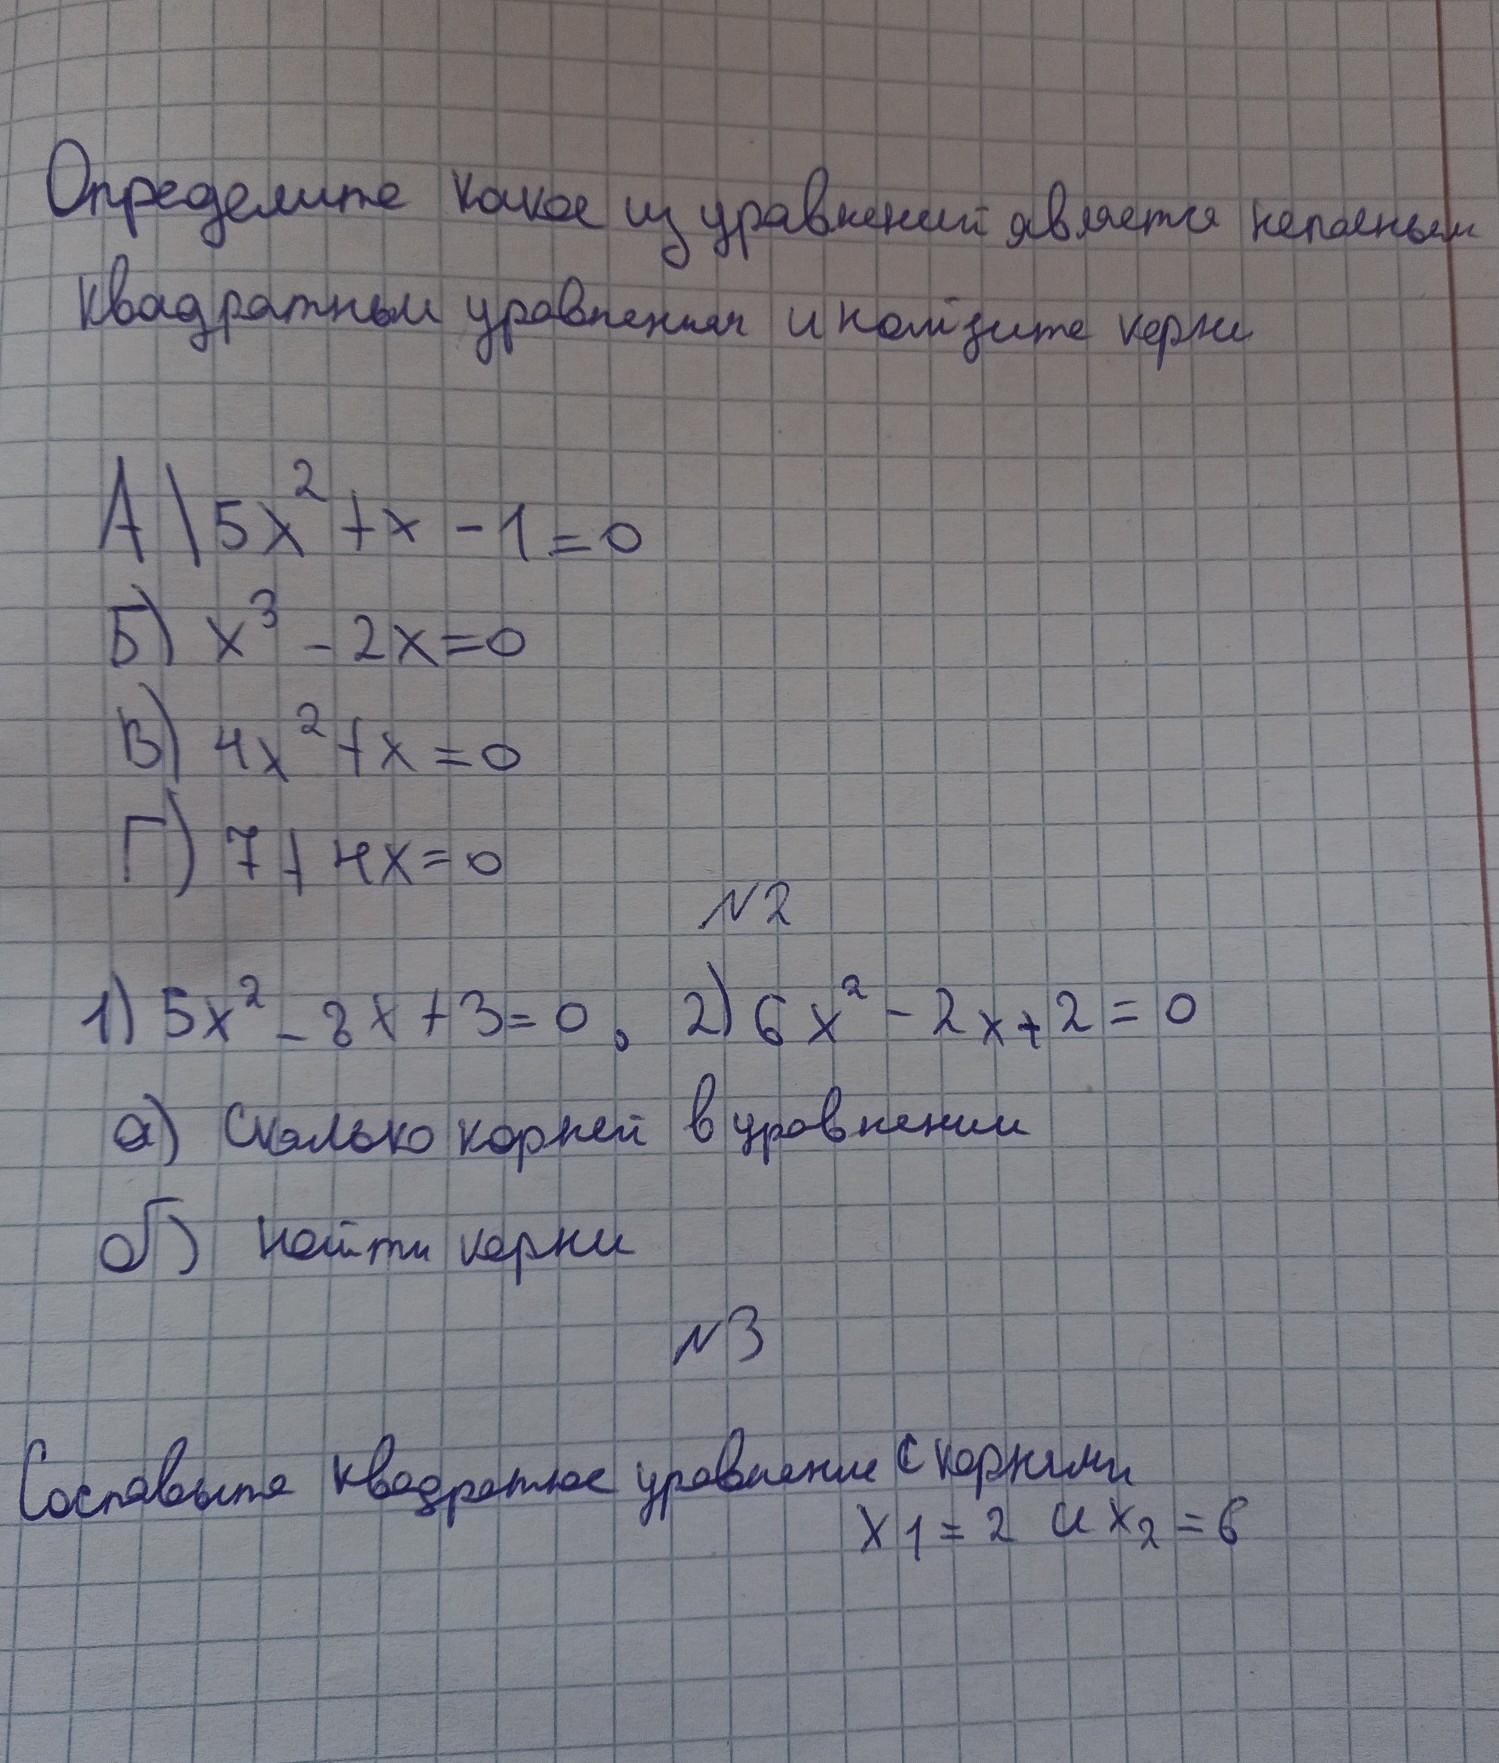 Определите какое из уравнений является неполным
квадратным уравнением и найдите корни
А) 5x² + x - 1 = 0
Б) x³ - 2x = 0
В) 4x² + x = 0
Г) 7 + 4x = 0
N2
1) 5x² - 8x + 3 = 0, 2) 6x² - 2x + 2 = 0
а) Сколько корней в уравнении
б) найти корни
N3
Составьте квадратное уравнение с корнями
x1 = 2 и x2 = 6